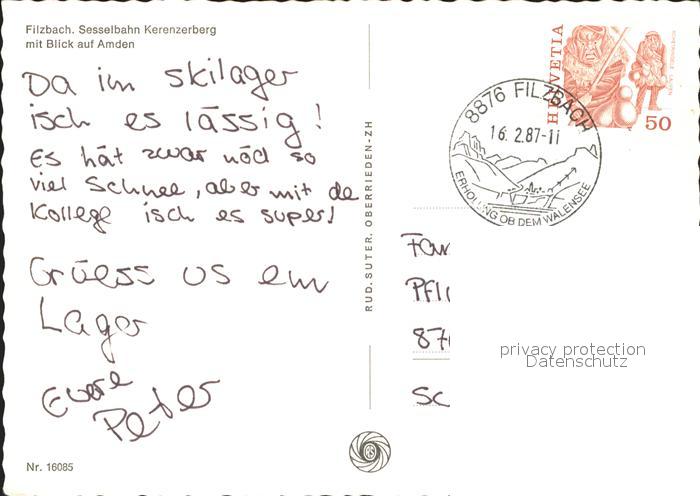 Filzbach. Sesselbahn Kerenzerberg
mit Blick auf Amden
Da im skilager
isch es lässig!
Es hät zwar nöd so
viel Schnee, aber mit de
Kollege isch es super!
Grüess us em
Lager
Euere
Peter
Nr. 16085
RUD. SUTER, OBERRIEDEN-ZH
8876 FILZBACH
16. 2.87-11
ERHOLUNG OB DEM WALENSEE
HELVETIA
50
Fam
Pfl
87
Sc
privacy protection
Datenschutz